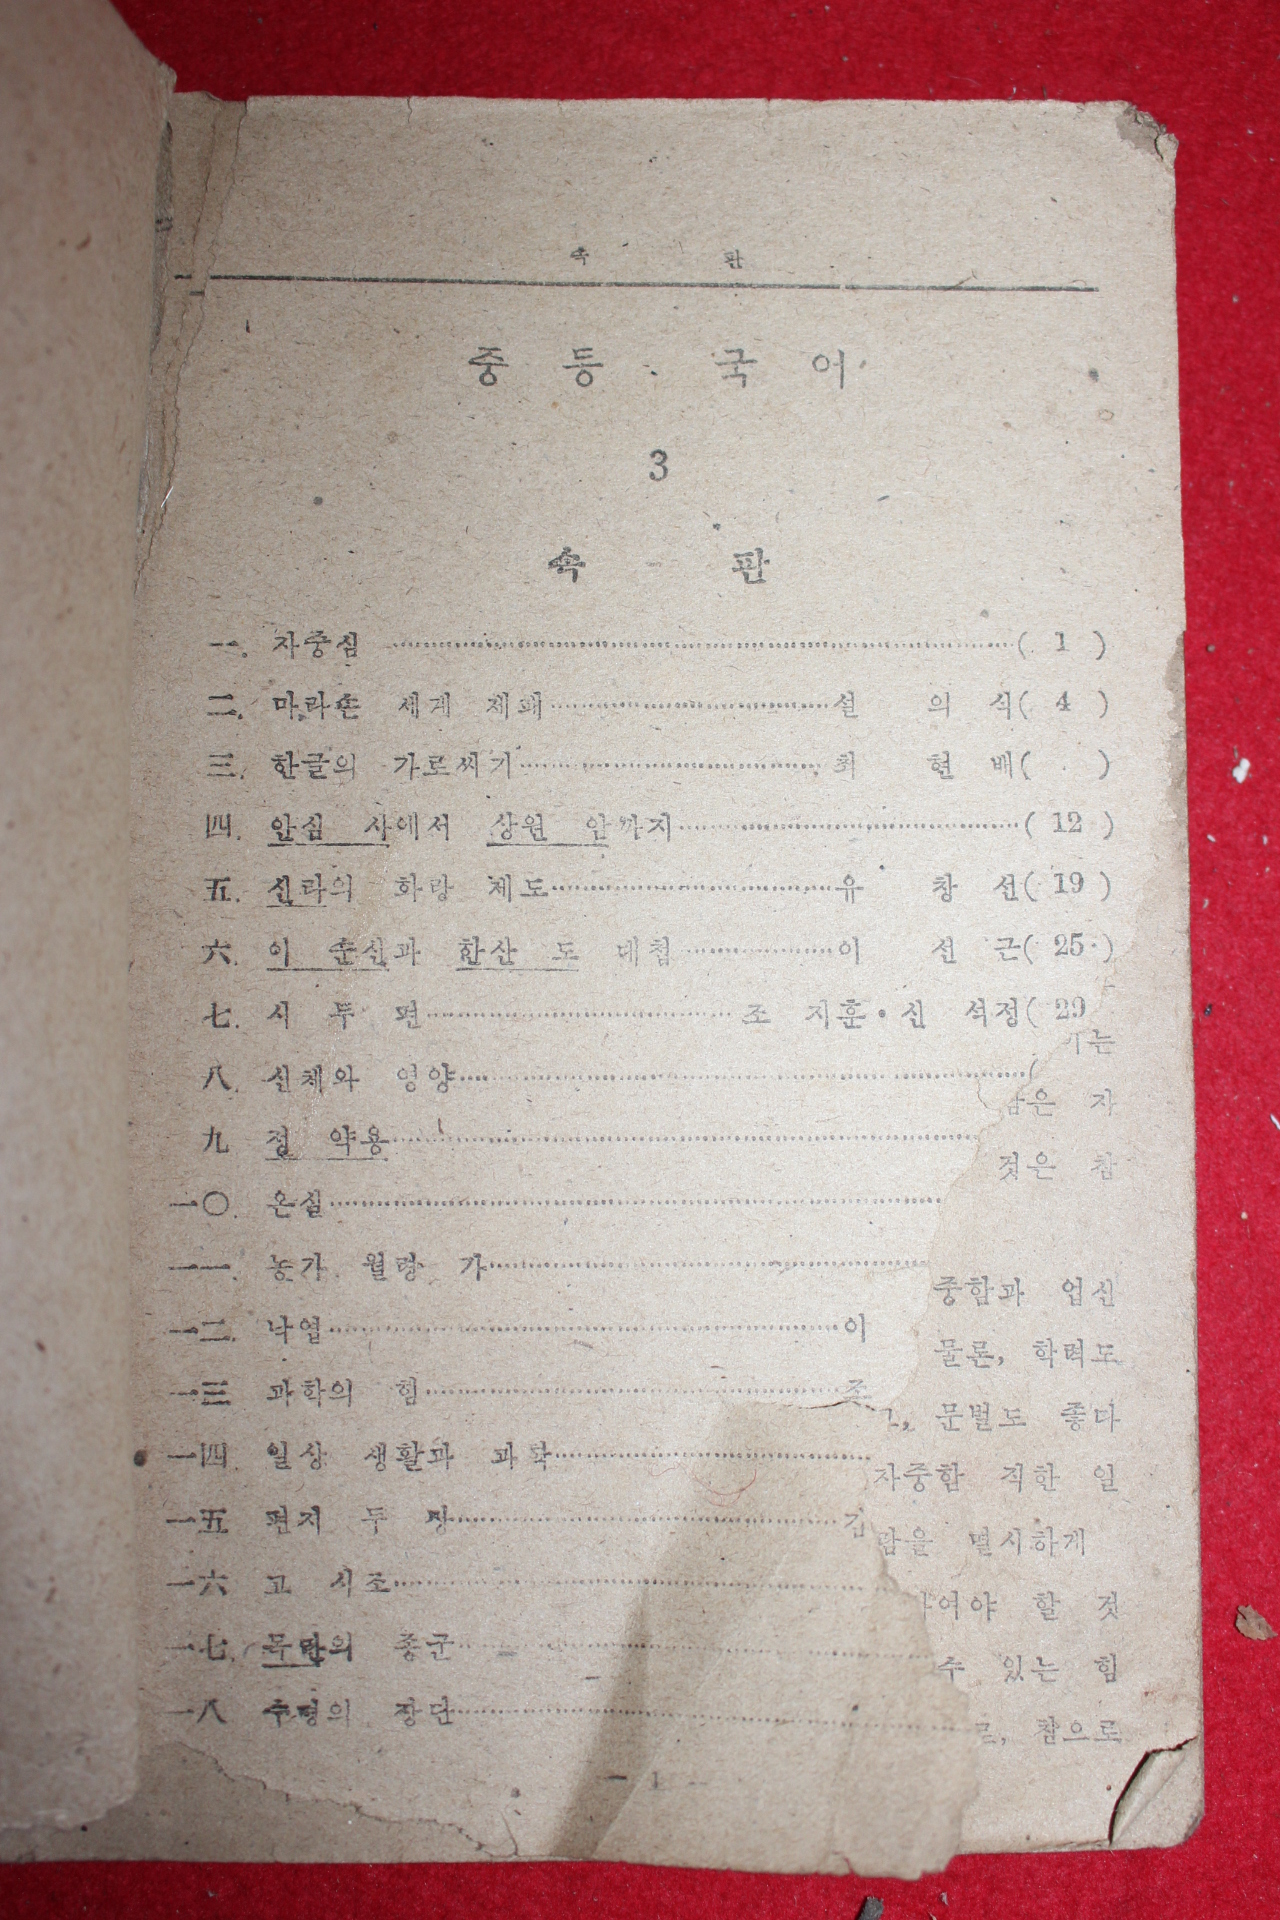 속 판
중 등 국 어
3
속 판
一. 자중심 ( 1 )
二. 마라손 세계 제패 설 의 식( 4 )
三. 한글의 가로씨기 최 현 배( )
四. 안심 사에서 상원 암까지 ( 12 )
五. 신라의 화랑 제도 유 창 선( 19 )
六. 이 순신과 한산 도 대첩 이 선 근( 25 )
七. 시 두 편 조 지훈·신 석정( 29
는
八. 신체와 영양 (
은 자
九 정 약용
것은 참
一〇. 온실
一一. 농가 월령 가
중함과 업신
一二. 낙엽 이
물론, 학력도
一三 과학의 힘 조
, 문벌도 좋다
一四 일상 생활과 과학
자중함 직한 일
一五 편지 두 장 김
람을 멸시하게
一六 고 시조
여야 할 것
一七. 목란의 종군
수 있는 힘
一八 수명의 장단
, 참으로
— 1 —